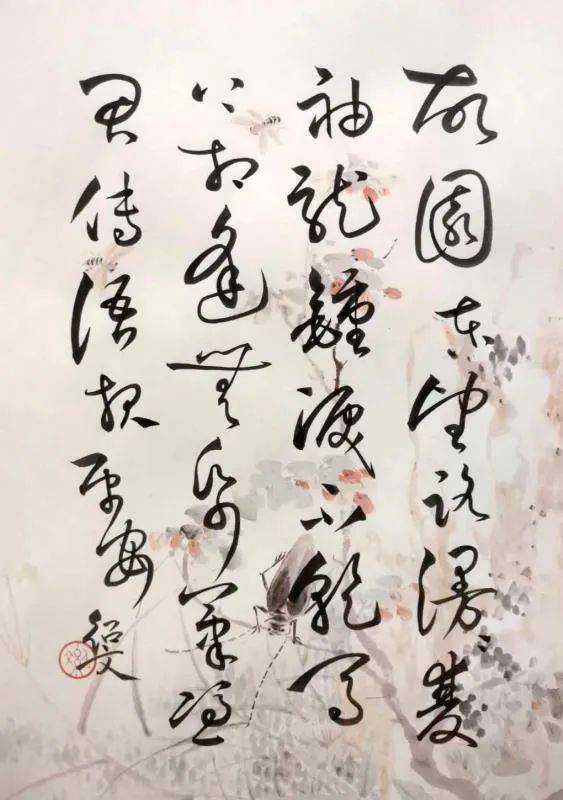 故園東望路漫〻雙
袖龍鍾淚不乾馬
上相逢無紙筆憑
君傳語報平安